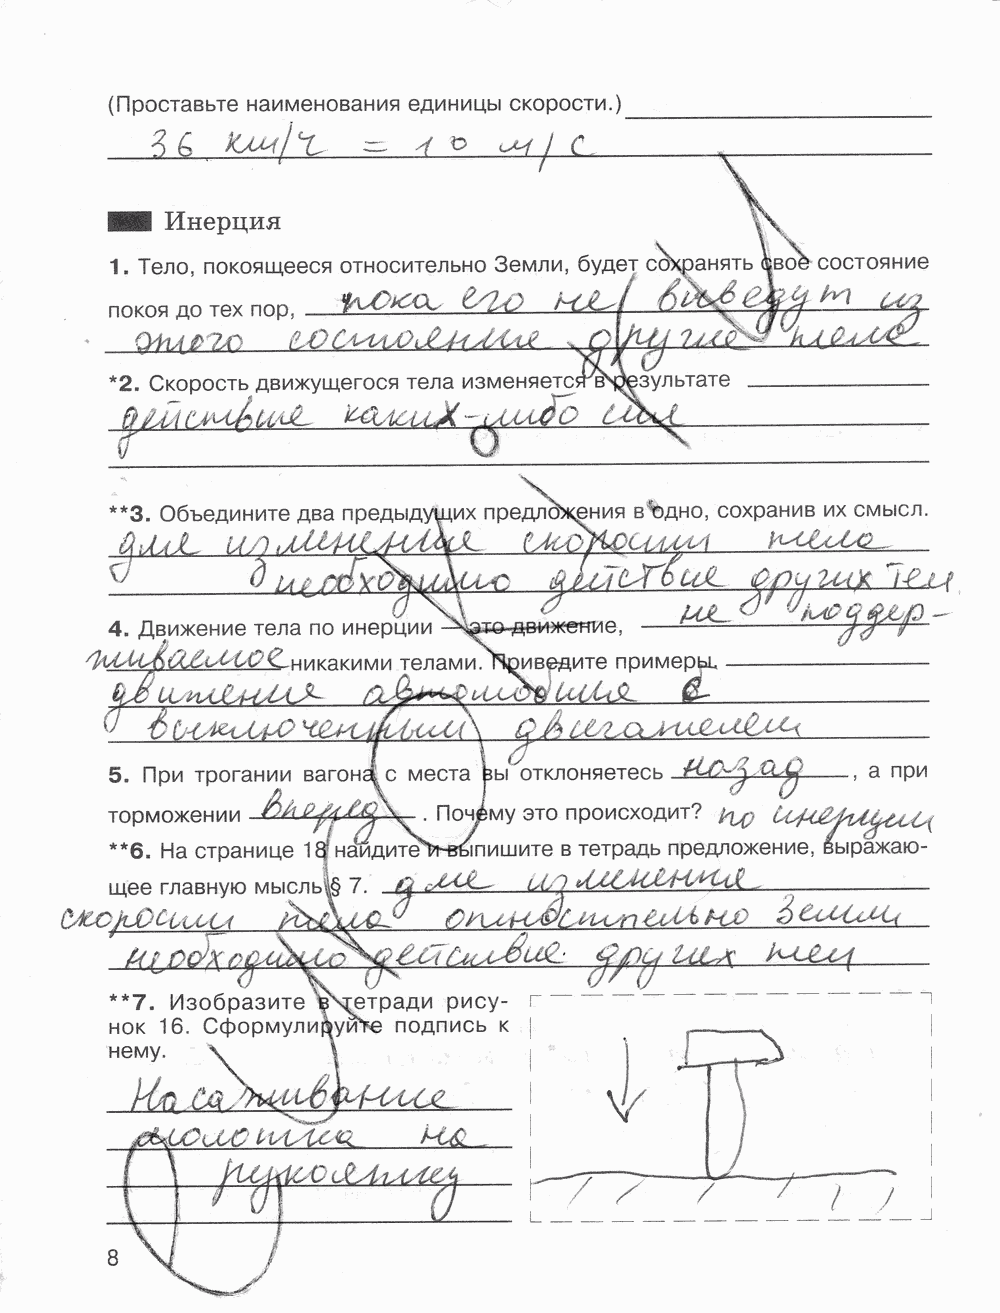 (Проставьте наименования единицы скорости.)
36 км/ч = 10 м/с
Инерция
1. Тело, покоящееся относительно Земли, будет сохранять свое состояние
покоя до тех пор, пока его не выведут из
этого состояние другие тела
*2. Скорость движущегося тела изменяется в результате
действие каких-либо сил
**3. Объедините два предыдущих предложения в одно, сохранив их смысл.
для изменения скорости тела
необходимо действие других тел
4. Движение тела по инерции — это движение, не поддер-
живаемое никакими телами. Приведите примеры.
движение автомобиля с
выключенным двигателем
5. При трогании вагона с места вы отклоняетесь назад, а при
торможении вперед. Почему это происходит? по инерции
**6. На странице 18 найдите и выпишите в тетрадь предложение, выражаю-
щее главную мысль § 7. для изменения
скорости тела относительно Земли
необходимо действие других тел
**7. Изобразите в тетради рису-
нок 16. Сформулируйте подпись к
нему.
Насаживание
молотка на
рукоятку
8